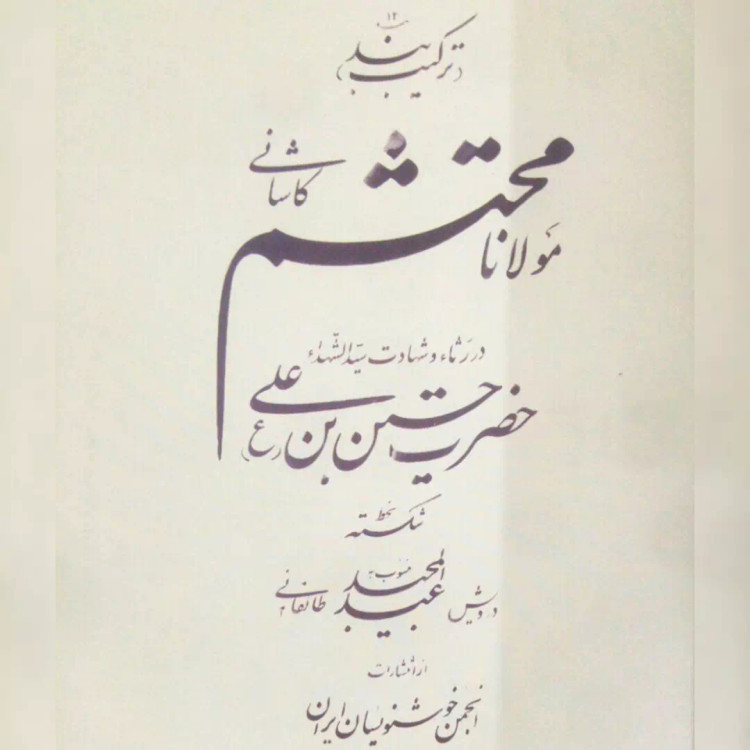 ۱۲ بند
(ترکیب بند)
مولانا محتشم کاشانی
در رثاء و شهادت سیّدالشّهداء
حضرت حسین بن علی (ع)
بخط شکسته
منسوب به
درویش عبدالمجید طالقانی
از انتشارات
انجمن خوشنویسان ایران